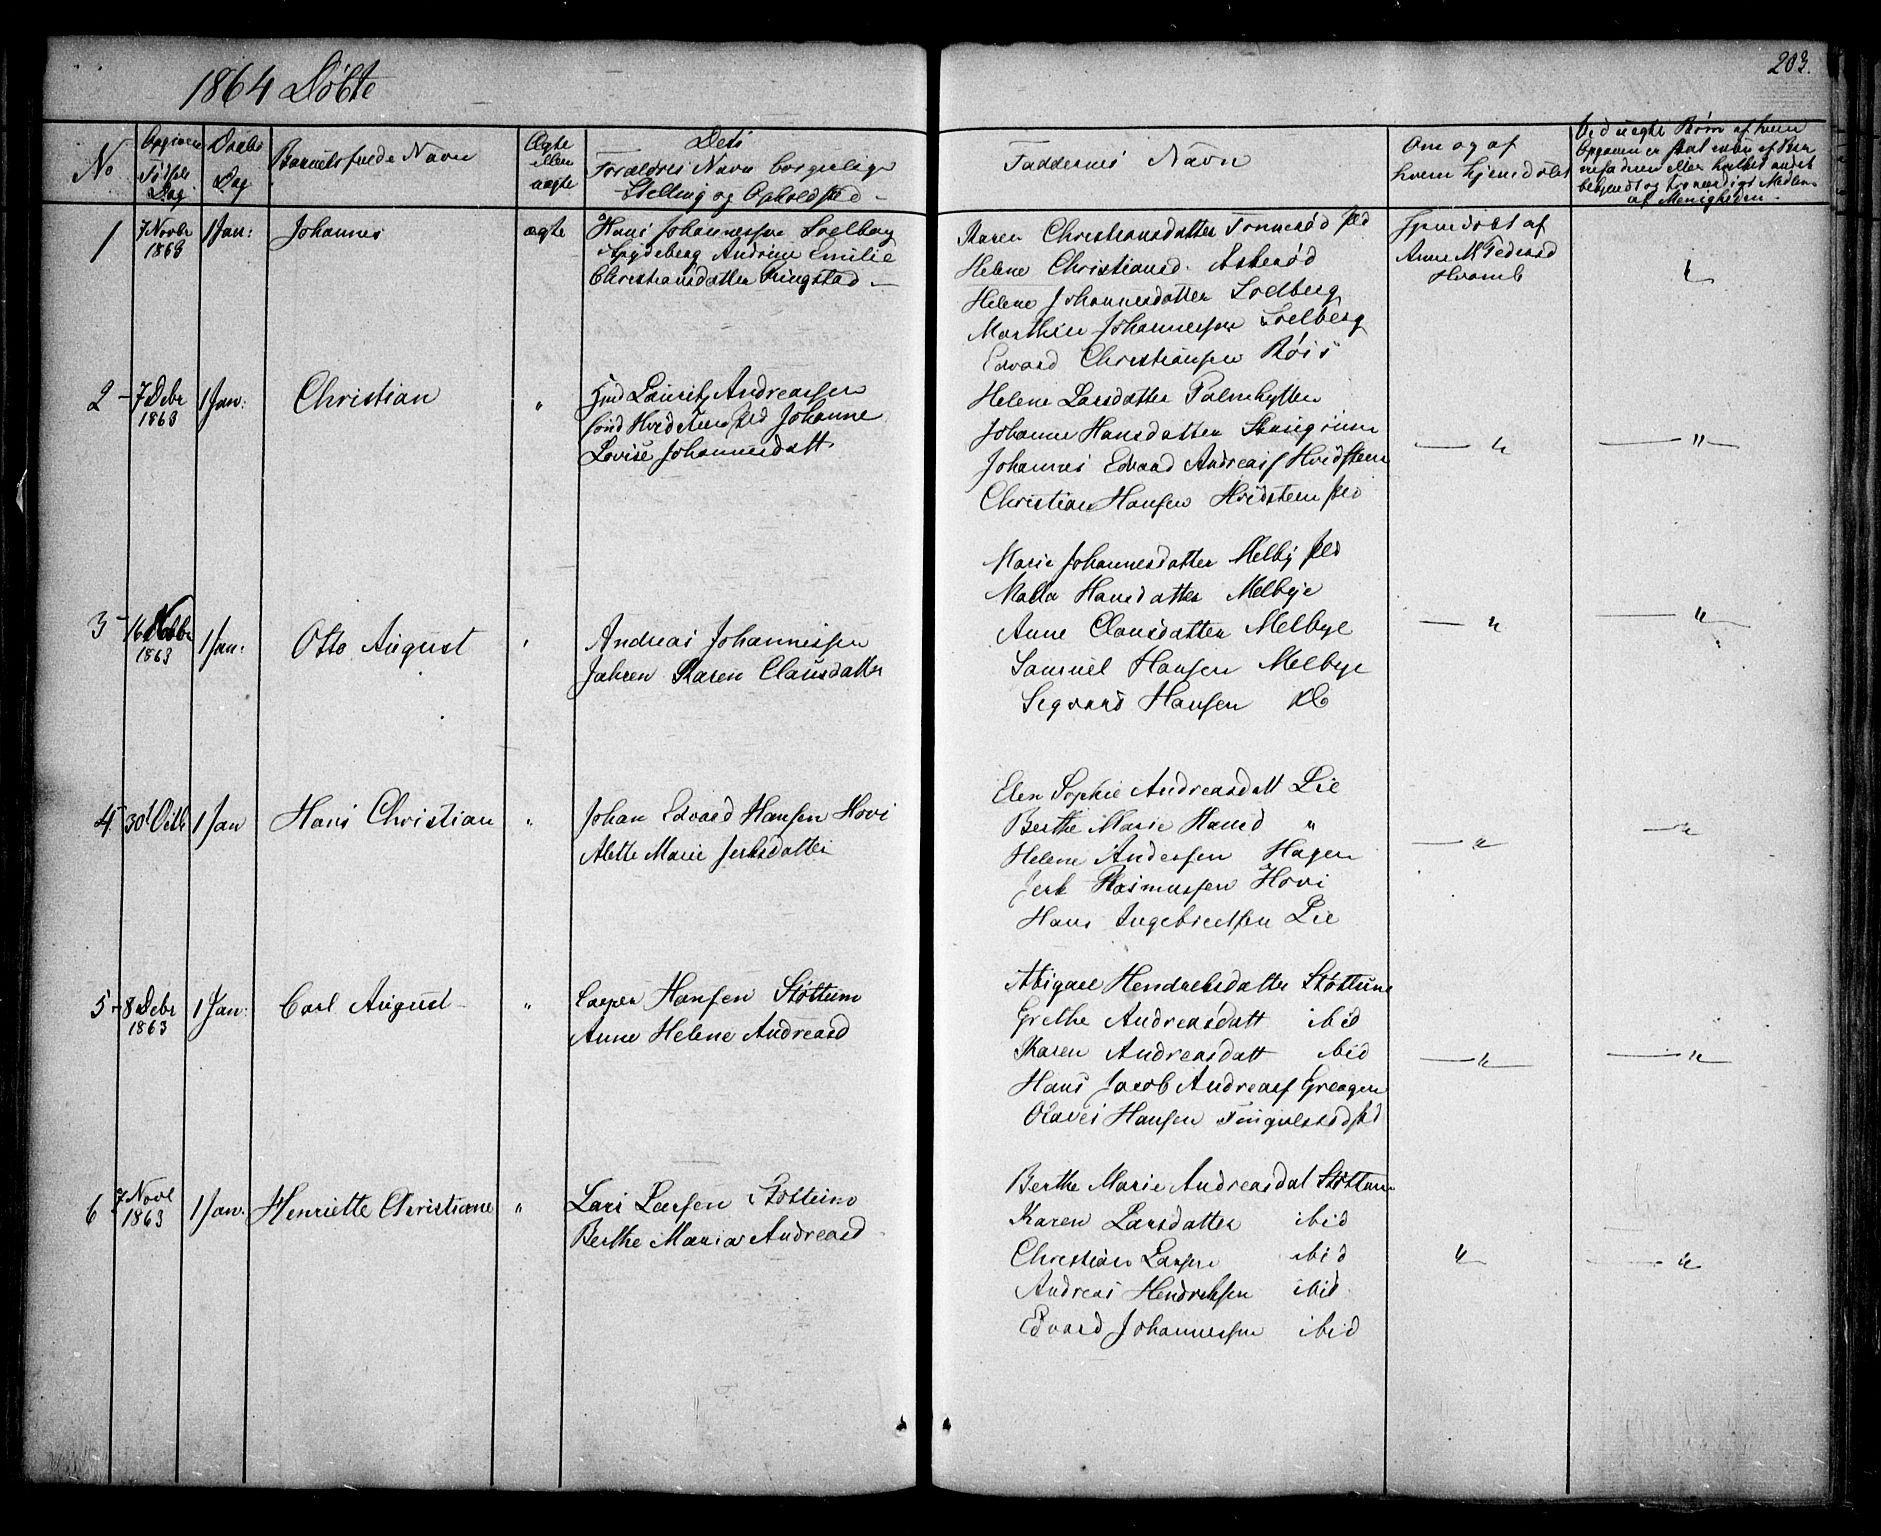 1864 Døbte
203.
No
Opgiven Fødsels Dag
Daabs Dag
Barnets fulde Navn
Ægte eller uægte
Dets Forældres Navn borgerlige Stilling og Opholdssted
Faddernes Navn
Om og af hvem hjemmedøbt
Ved uægte Børn af hvem Opgaven er skeet enten af Barnefaderen eller hvilket andet bekjendt og troværdigt Medlem af Menigheden.
1 7 Novbr 1863 1 Jan: Johannes ægte
Hans Johannessen Soelberg
i Spydeberg Andrine Emilie
Christiansdatter Ringstad
Karen Christiansdatter
Helene Christiansd. Askerød
Helene Johannesdatter Soelberg
Marthin Johannessen Soelberg
Edvard Christiansen Röis
Hjemmedøbt af
Anne M Pedersd
Hvamb
"
2 7 Debr 1863 1 Jan: Christian "
Lauritz Andreassen
Johanne
Lovise Johannesdatt.
Helene Larsdatter
Johanne Hansdatter
Johannes Edvard Andreass Hvidsteen
Christian Hansen Hvidsteen
" "
3 16 1863 1 Jan: Otto August "
Andreas Johannessen
Jahren Karen Clausdatter
Marie Johannesdatter Melby
Malla Hansdatter Melbye
Anne Clausdatter Melbye
Samuel Hansen Melbye
Segvard Hansen
" "
4 30 Octb 1 Jan Hans Christian "
Johan Edvard Hansen Hovi
Alette Marie Jerksdatter
Elen Sophie Andreasdatt Lie
Berthe Marie Hansd "
Helene Andersen Hagen
Jerk Rasmussen Hovi
Hans Ingebretsen Lie
" "
5 8 Debr 1863 1 Jan: Carl August "
Casper Hansen Støttum
Anne Helene Andreasd
Abigael Hendreksdatter Støttum
Grethe Andreasdatt ibid
Karen Andreasdatt ibid
Hans Jacob Andreass
Olaves Hansen
" "
6 7 Novb 1863 1 Jan. Henriette Christiane "
Lars Larsen Støttum
Berthe Maria Andreasd
Berthe Marie Andreasdat Støttum
Karen Larsdatter ibid
Christian Larsen ibid
Andreas Hendreksen ibid
Edvard Johannessen ibid
" "